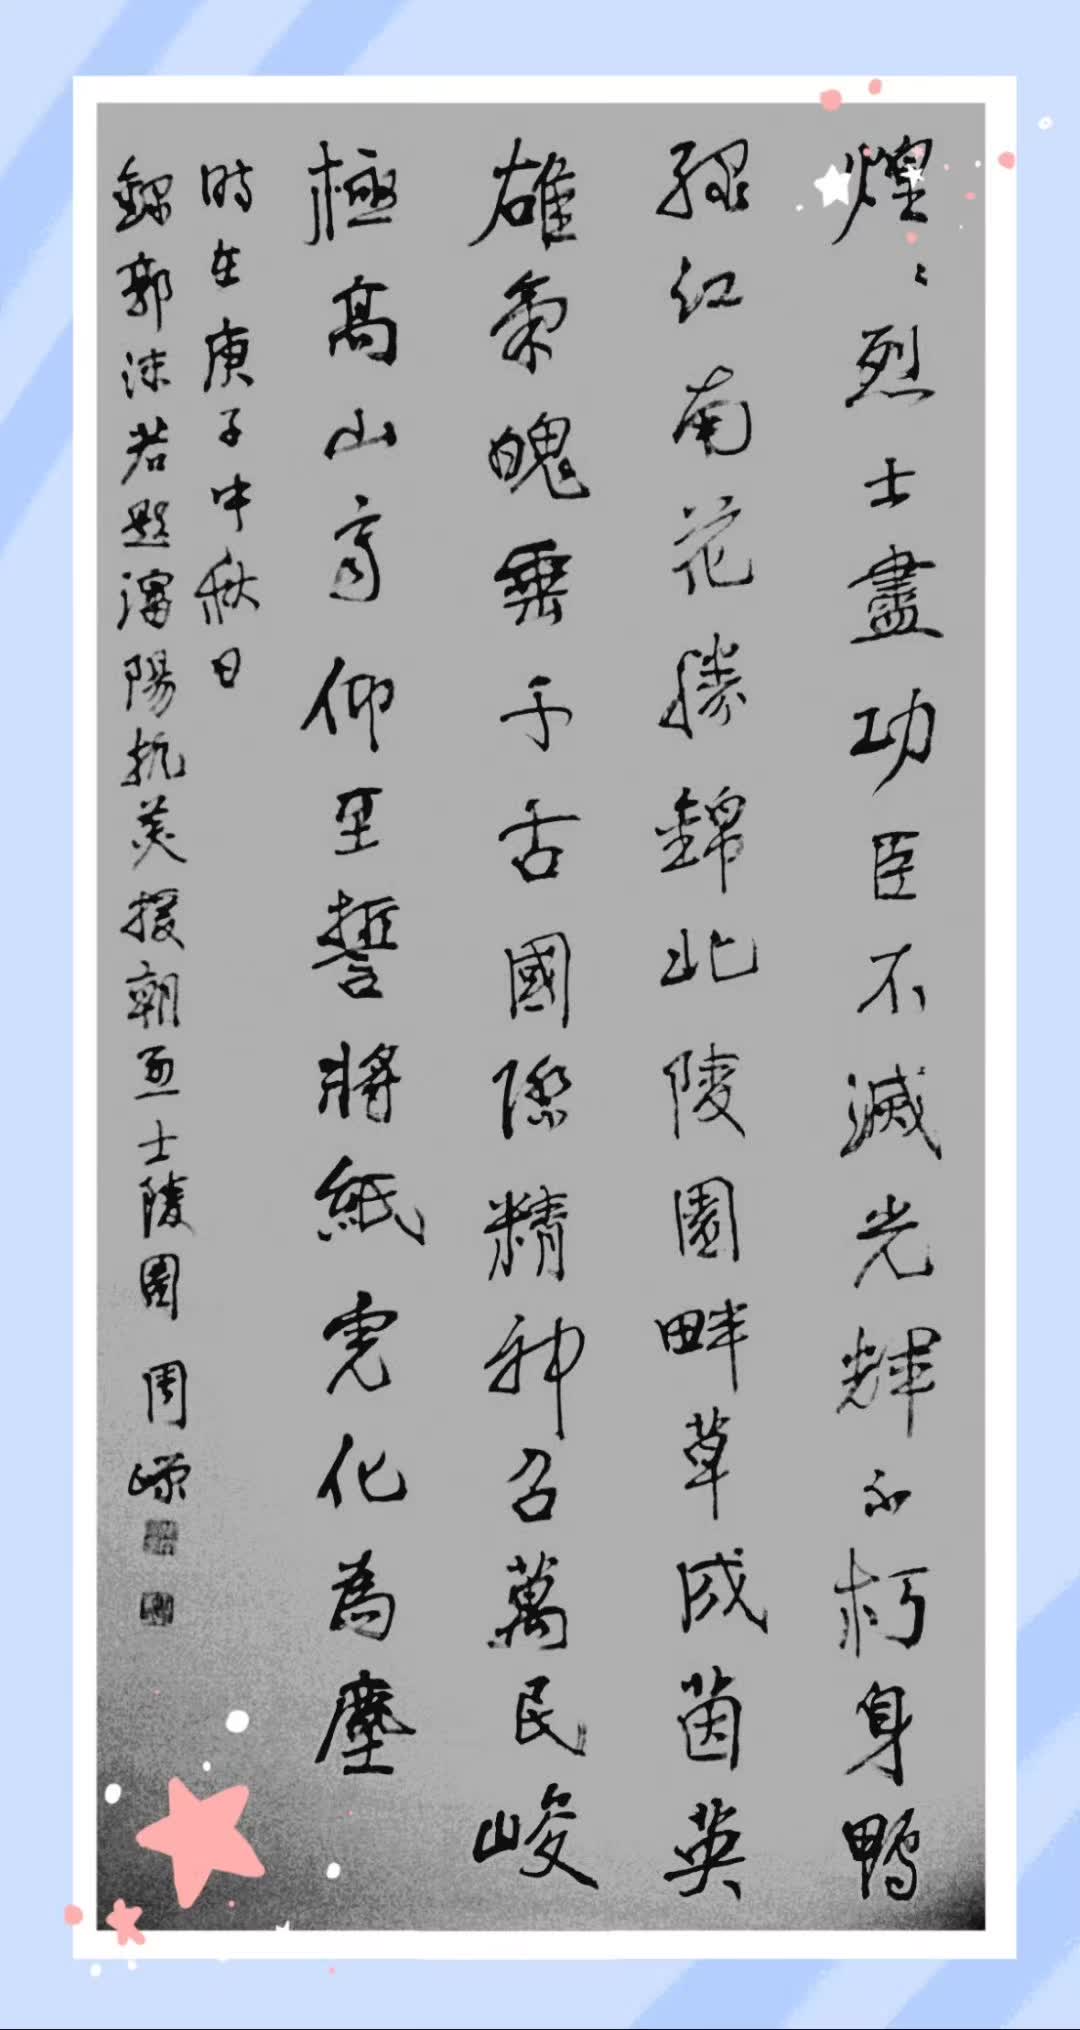 煌々烈士盡功臣不滅光輝不朽身鴨
綠江南花勝錦北陵園畔草成茵英
雄氣魄垂千古國際精神召萬民峻
極高山齊仰止誓將紙虎化為塵
時在庚子中秋日
錄郭沫若題瀋陽抗美援朝烈士陵園 周